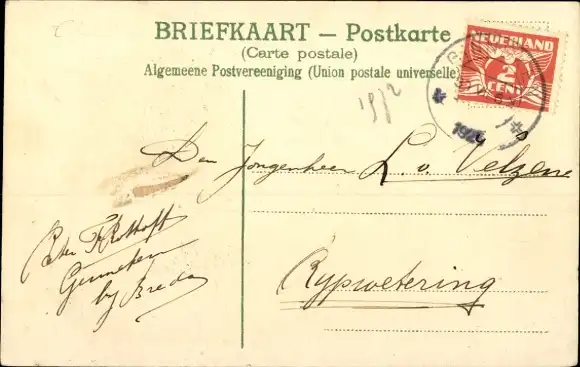 BRIEFKAART – Postkarte
(Carte postale)
Algemeene Postvereeniging (Union postale universelle)
NEDERLAND
2
CENT
Den Jongenheer L. v. Velzen
Rypwetering
Peter
Ginneken
by Breda